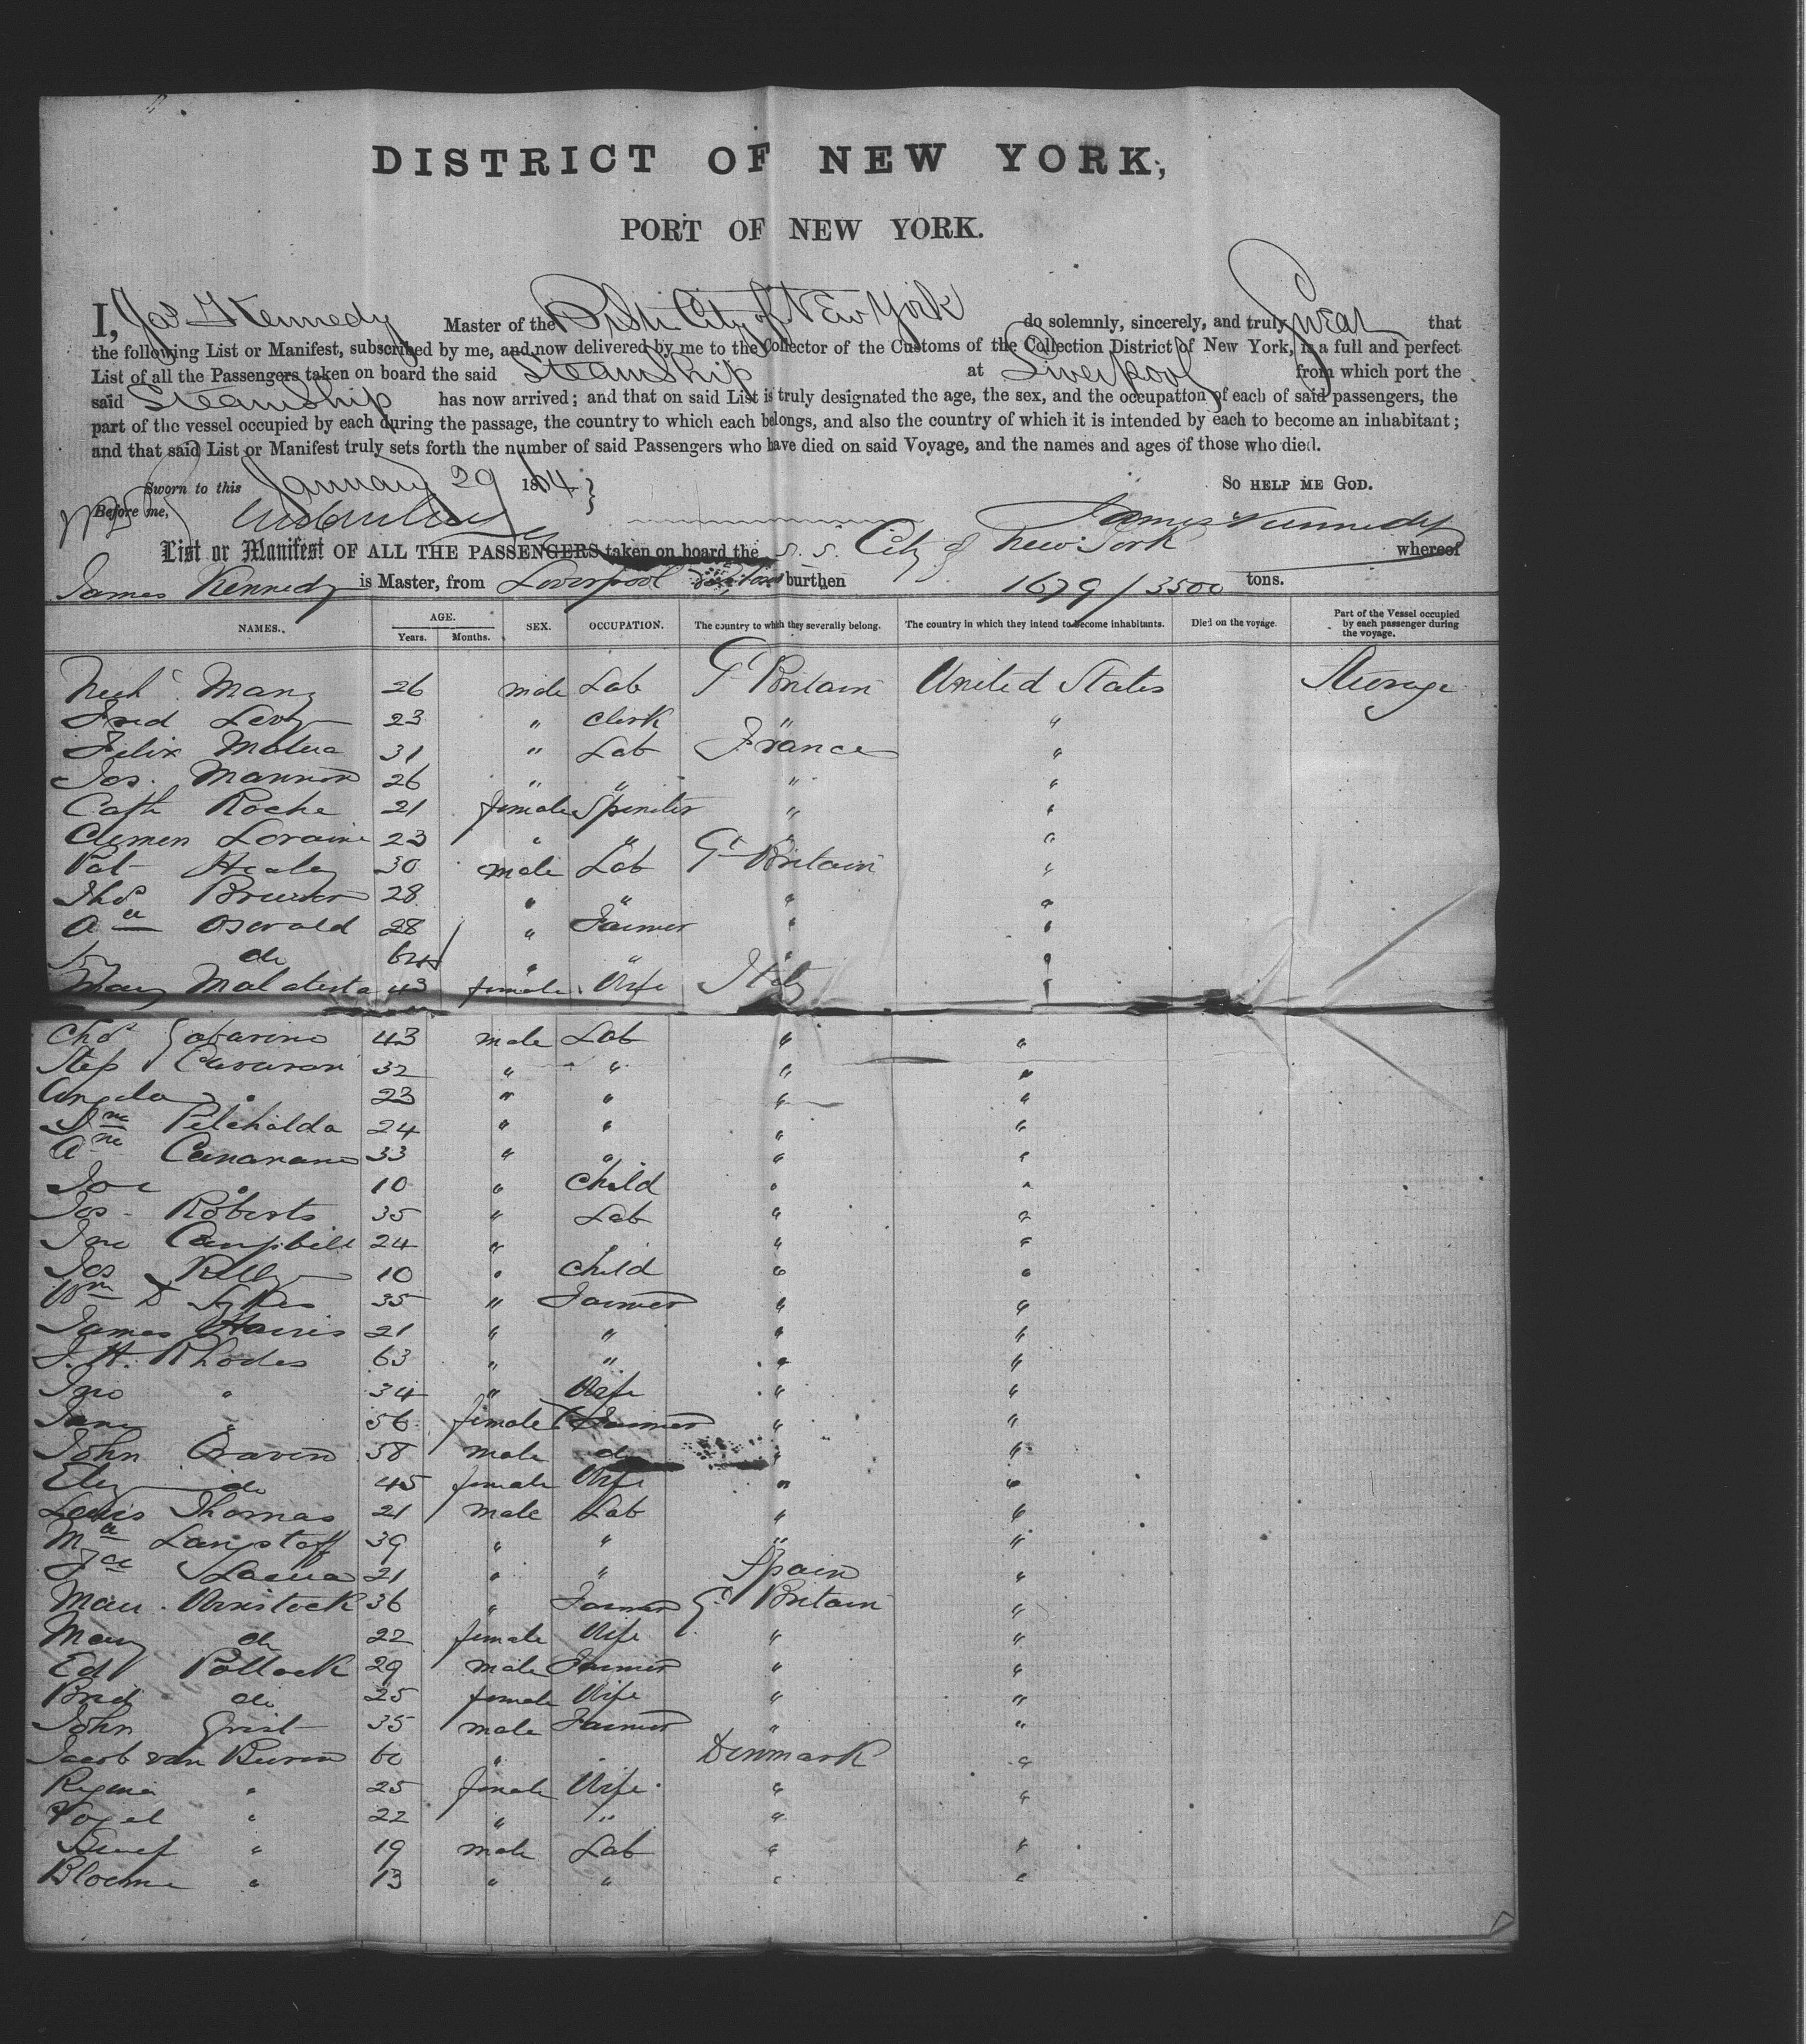 DISTRICT OF NEW YORK,
PORT OF NEW YORK.
I, Jas Kennedy Master of the City of New York do solemnly, sincerely, and truly swear that
the following List or Manifest, subscribed by me, and now delivered by me to the Collector of the Customs of the Collection District of New York, is a full and perfect
List of all the Passengers taken on board the said Steamship at Liverpool from which port the
said Steamship has now arrived; and that on said List is truly designated the age, the sex, and the occupation of each of said passengers, the
part of the vessel occupied by each during the passage, the country to which each belongs, and also the country of which it is intended by each to become an inhabitant;
and that said List or Manifest truly sets forth the number of said Passengers who have died on said Voyage, and the names and ages of those who died.
Sworn to this January 29 18 4 } SO HELP ME GOD.
Before me, James Kennedy
List or Manifest OF ALL THE PASSENGERS taken on board the S. S. City of New York whereof
James Kennedy is Master, from Liverpool burthen 1679/3500 tons.
NAMES. AGE. Years. Months. SEX. OCCUPATION. The country to which they severally belong. The country in which they intend to become inhabitants. Died on the voyage. Part of the Vessel occupied by each passenger during the voyage.
26 male Lab Gt Britain United States Steerage
Fred Levy 23 " Clerk " "
Felix 31 " Lab France "
Jos. Mannion 26 " " " "
Cath Roche 21 female Spinster " "
Clemen Loraine 23 " " " "
Pat Healy 30 male Lab Gt Britain "
Thos 28 " " " "
Oswald 28 " Farmer " "
do " " " "
Mary Malatesta 43 female Wife Italy "
Chs Gabarino 43 male Lab " "
Step 32 " " " "
Angelo " 23 " " " "
24 " " " "
Canavan 33 " " " "
Joe " 10 " Child " "
Jos Roberts 35 " Lab " "
Jno Campbell 24 " " " "
Jos Kelly 10 " Child " "
Wm D Sykes 35 " Farmer " "
James Harris 21 " " " "
J. H. Rhodes 63 " " " "
Jno " 34 " Wife " "
Jane " 56 female Farmer " "
John Craven 38 male do " "
Eliz do 45 female Wife " "
Lewis Thomas 21 male Lab " "
Langstaff 39 " " " "
21 " " Spain "
36 " Farmer Gt Britain "
Mary do 22 female Wife " "
Ed Pollock 29 male Farmer " "
Brid do 25 female Wife " "
John Grist 35 male Farmer " "
Jacob van Buren 60 " Denmark "
Regina " 25 female Wife " "
Vogel " 22 " " " "
" 19 male Lab " "
" 13 " " " "